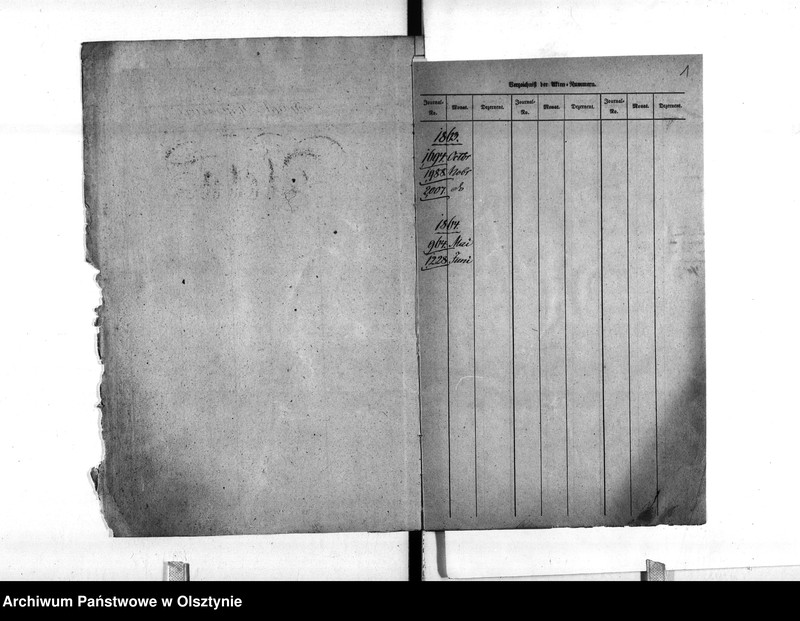 1
Verzeichniß der Akten-Nummern.
Journal-No. Monat. Dezernent. Journal-No. Monat. Dezernent. Journal-No. Monat. Dezernent.
1863.
1694. Octbr
1988. Novbr
2007. do
1864.
964. Mai
1228. Juni
Archiwum Państwowe w Olsztynie